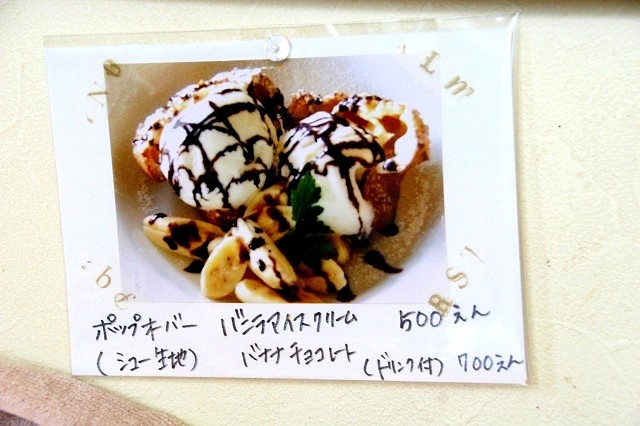 ポップオーバー バニラアイスクリーム 500えん
(シュー生地) バナナチョコレート (ドリンク付) 700えん